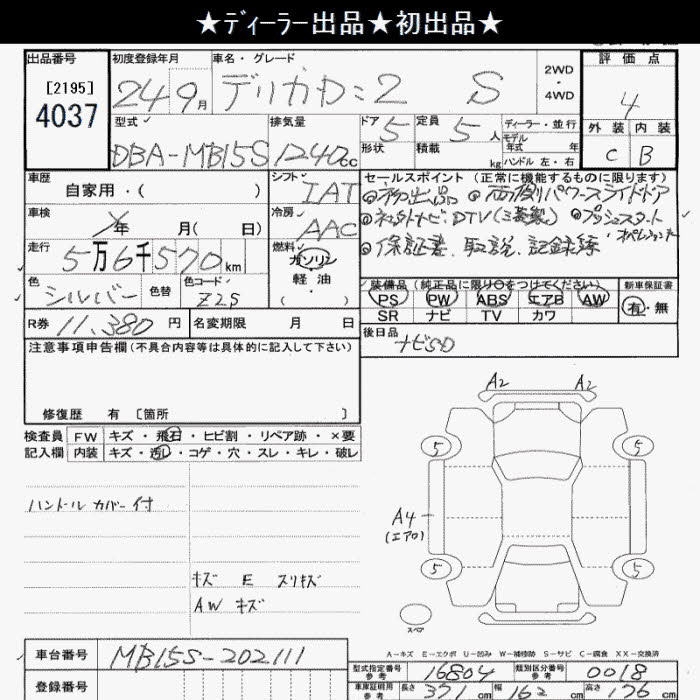 ★ディーラー出品★初出品★
出品番号 初度登録年月 車名・グレード 評価点
[2195]
4037
24 9月 デリカD:2 S
2WD
・
4WD
4
型式 排気量 ドア 5 定員 5人 ディーラー・並行
モデル
年式 年
形状 積載 kg ハンドル 左・右
外装 内装
C B
DBA-MB15S 1240cc
車歴 シフト IAT セールスポイント (正常に機能するものに限ります)
自家用・( )
◎初出品 ◎両側パワースライドドア
車検 年 月( 日) 冷房 AAC
◎社外ナビ DTV(三菱製) ◎プッシュスタート
走行 5万6千570km 燃料 ガソリン
軽油
・( )
◎保証書、取説、記録簿
色 シルバー 色替 色コード Z2S
装備品 (純正品に限り○をつけてください) 新車保証書
PS PW ABS エアB AW 有・無
SR ナビ TV カワ
R券 11,380円 名変期限 月 日
後日品 ナビSD
注意事項申告欄(不具合内容等は具体的に記入して下さい)
修復歴 有 [箇所 ]
検査員 FW キズ・飛石・ヒビ割・リペア跡・×要
記入欄 内装 キズ・汚レ・コゲ・穴・スレ・キレ・破レ
A2 A2
5 5
ハンドルカバー付
A4
(エアロ)
5 5
キズ E スリキズ
AW キズ
スペア
A－キズ E－エクボ U－凹み W－補修跡 S－サビ C－腐食 XX－交換済
車台番号 MB15S-202111
型式指定番号
参考 16804 類別区分番号
参考 0018
登録番号
車庫証明用
参考 長さ 371cm 幅 162cm 高さ cm